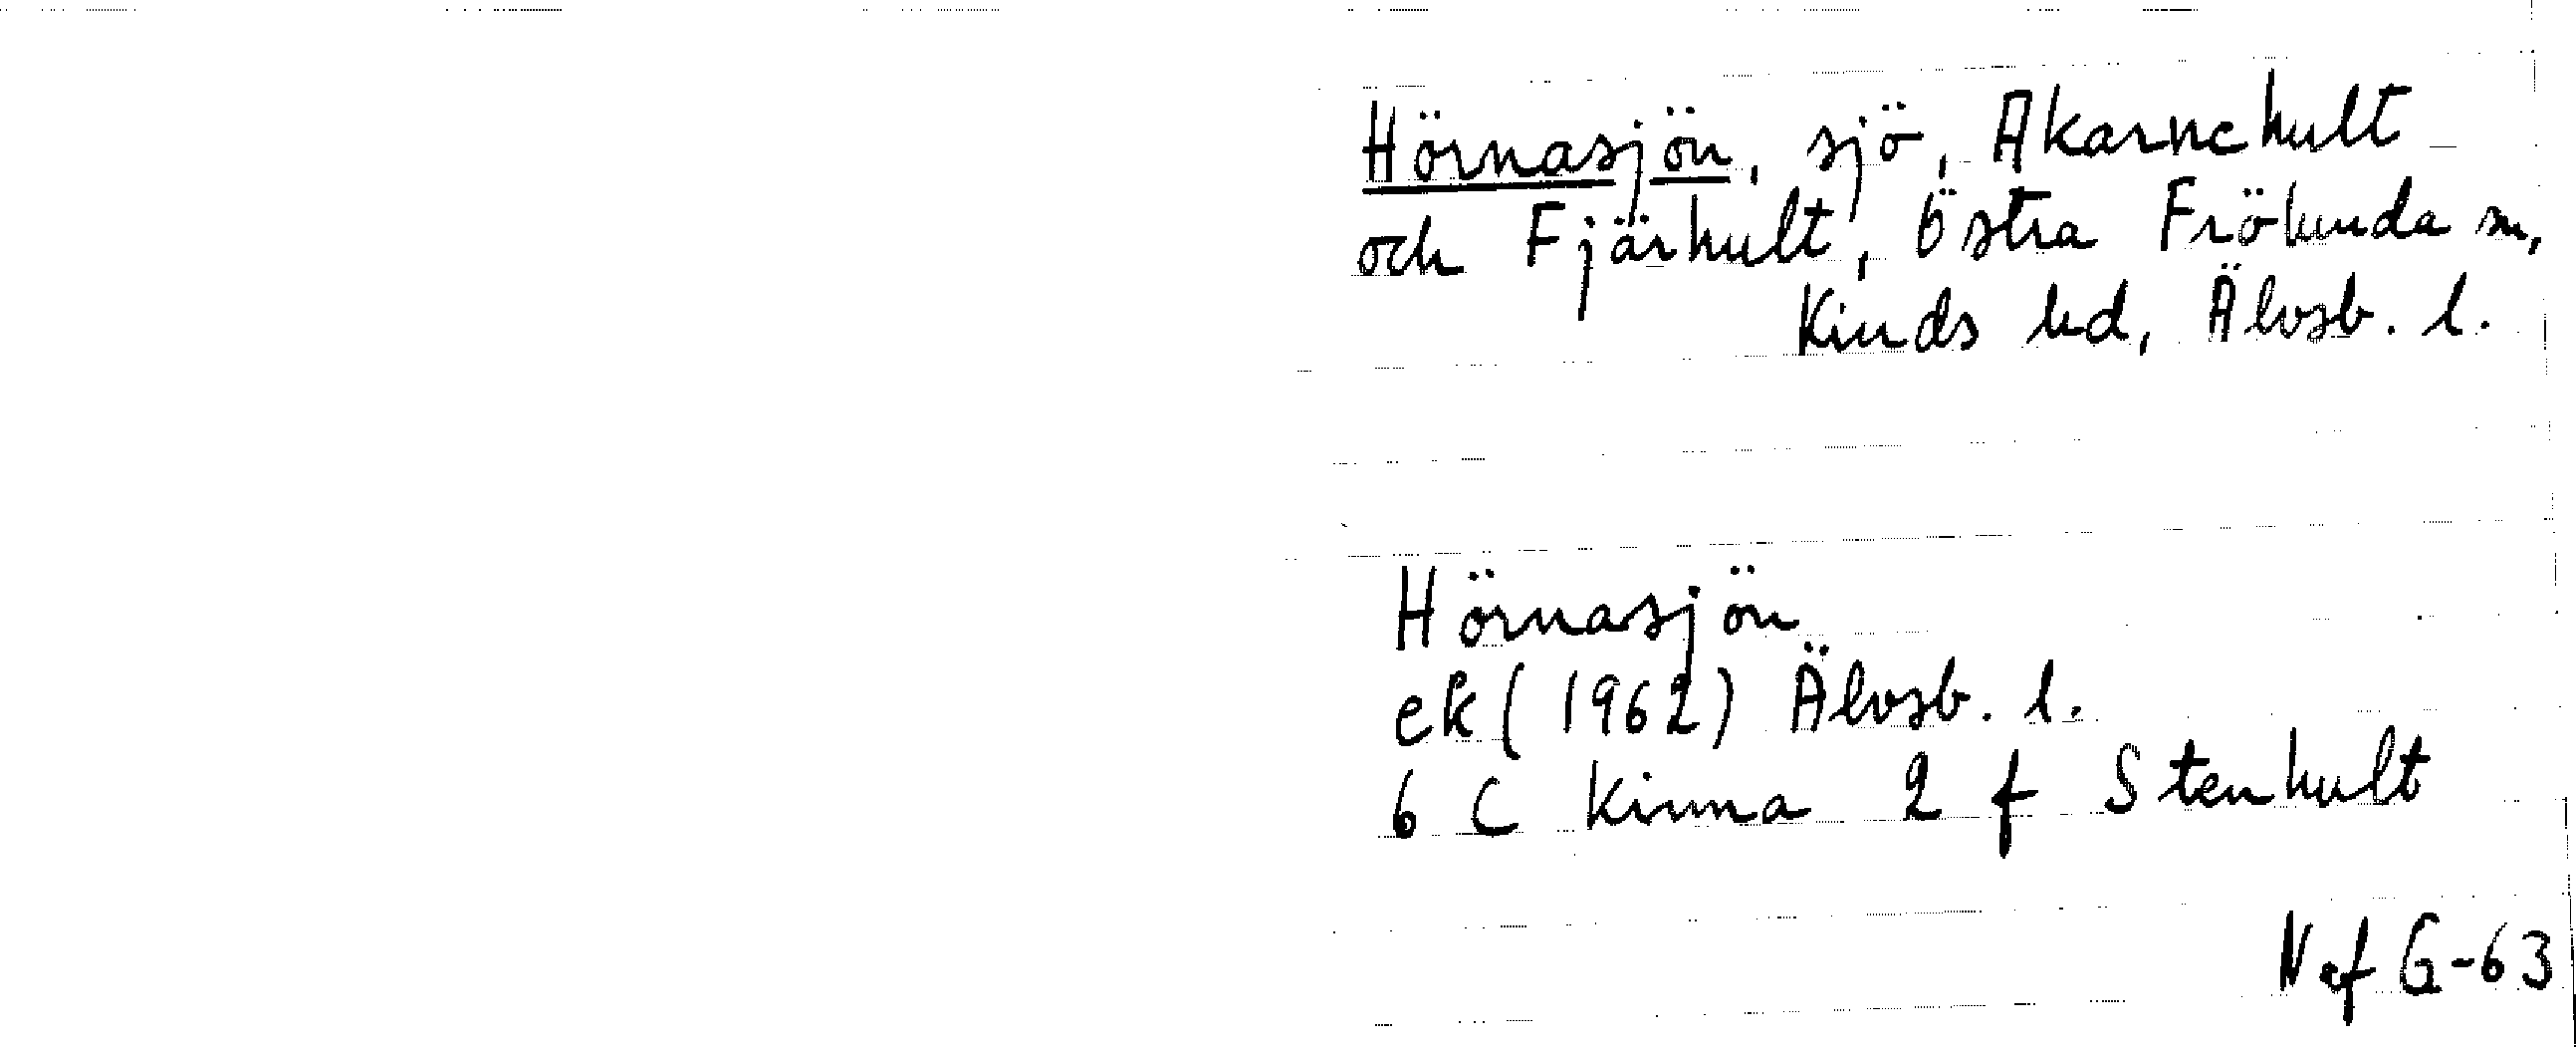 Hörnasjön, sjö, Akarnehult
och Fjärhult, Östra Frölunda sn,
Kinds hd, Älvsb. l.
Hörnasjön
ek (1962) Älvsb. l.
6 C Kinna 2 f Stenhult
Nef G-63